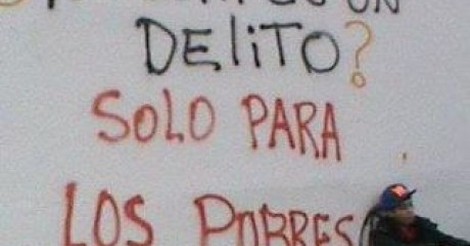 UN
DELiTO?
SOLO PARA
LOS POBRES